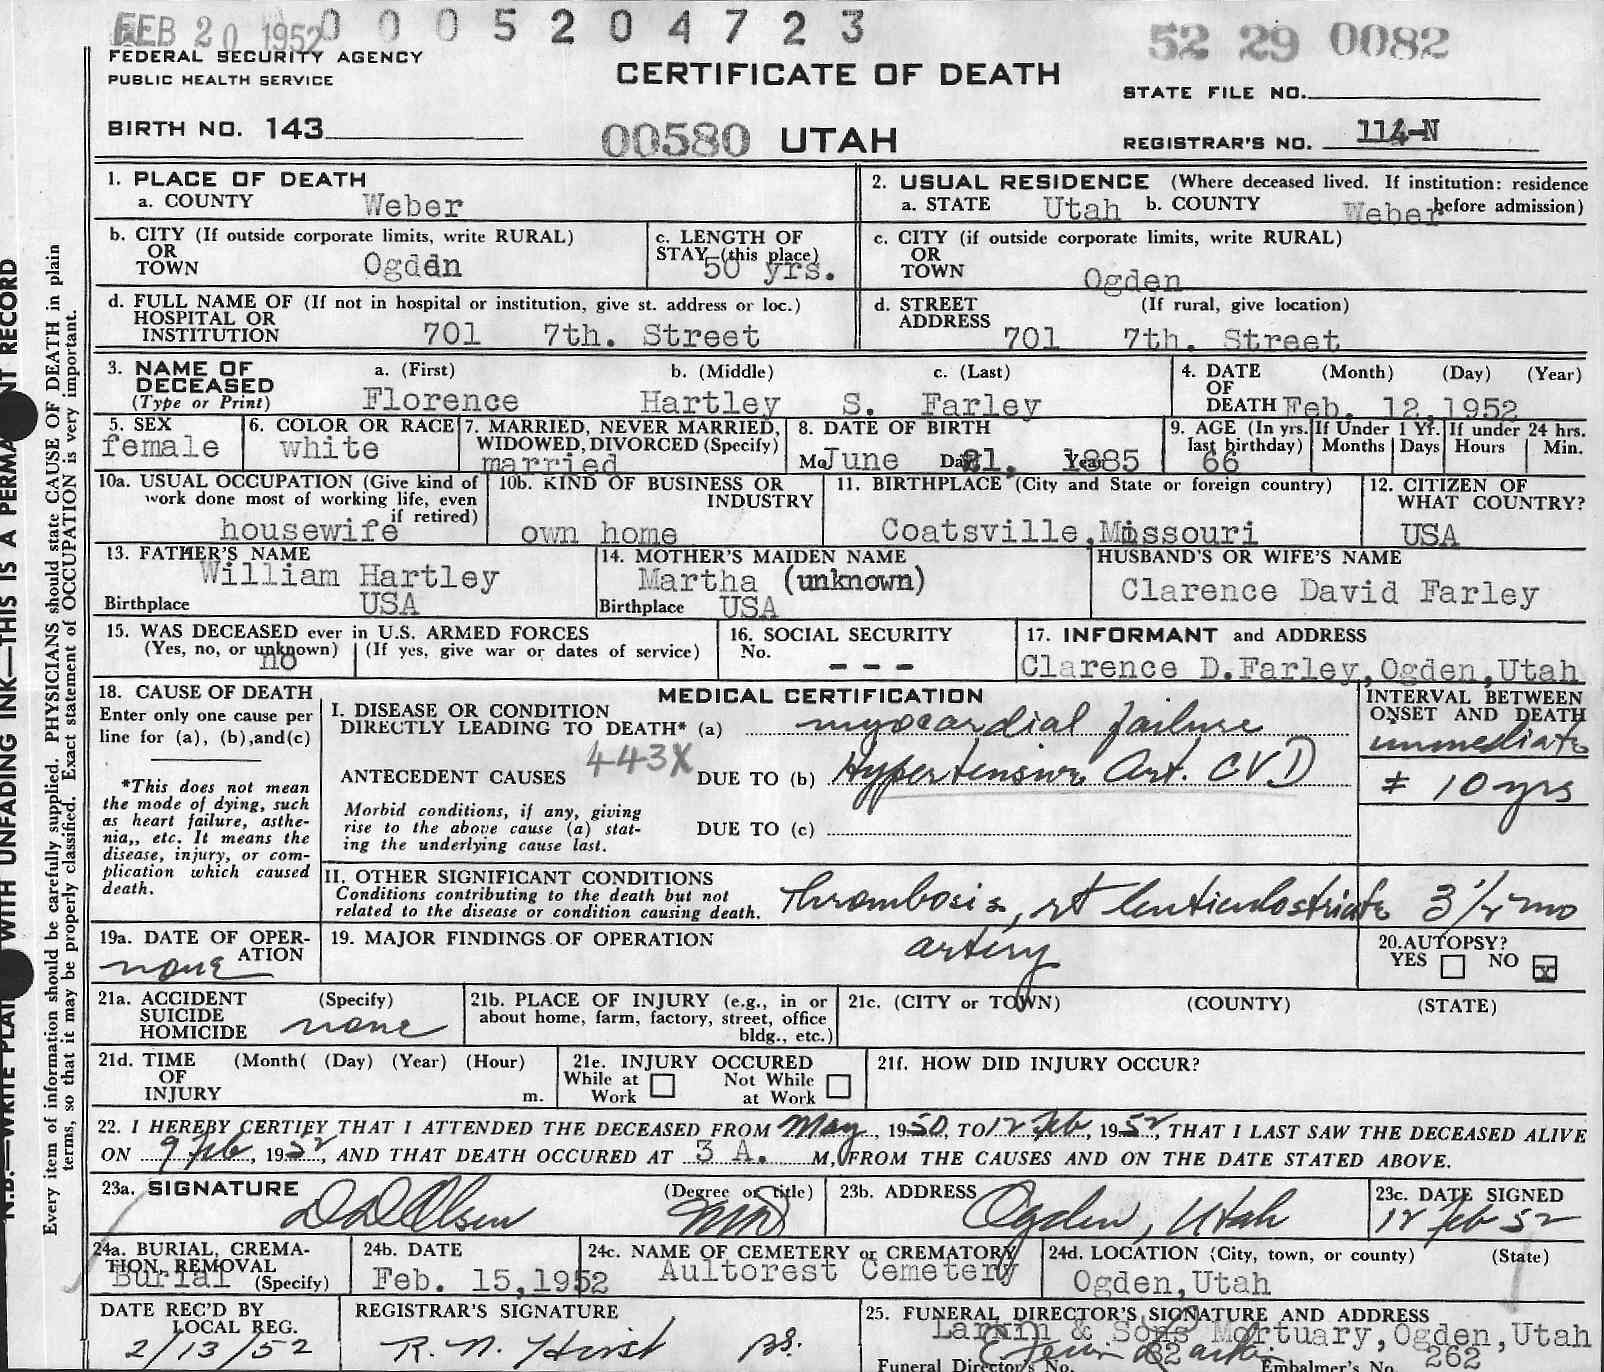 FEB 20 1952 0 0 0 5 2 0 4 7 2 3 52 29 0082
FEDERAL SECURITY AGENCY
PUBLIC HEALTH SERVICE
CERTIFICATE OF DEATH
STATE FILE NO.
BIRTH NO. 143
00580 UTAH
REGISTRAR'S NO. 114-N
1. PLACE OF DEATH
a. COUNTY Weber
2. USUAL RESIDENCE (Where deceased lived. If institution: residence
a. STATE Utah b. COUNTY Weber before admission)
b. CITY (If outside corporate limits, write RURAL)
OR
TOWN Ogden
c. LENGTH OF
STAY (this place)
50 yrs.
c. CITY (if outside corporate limits, write RURAL)
OR
TOWN Ogden
d. FULL NAME OF (If not in hospital or institution, give st. address or loc.)
HOSPITAL OR
INSTITUTION 701 7th. Street
d. STREET (If rural, give location)
ADDRESS 701 7th. Street
3. NAME OF
DECEASED
(Type or Print)
a. (First) b. (Middle) c. (Last)
Florence Hartley S. Farley
4. DATE (Month) (Day) (Year)
OF
DEATH Feb. 12, 1952
5. SEX
female
6. COLOR OR RACE
white
7. MARRIED, NEVER MARRIED,
WIDOWED, DIVORCED (Specify)
married
8. DATE OF BIRTH
Mo. June Day 21, Year 1885
9. AGE (In yrs.
last birthday)
66
If Under 1 Yr.
Months Days
If under 24 hrs.
Hours Min.
10a. USUAL OCCUPATION (Give kind of
work done most of working life, even
if retired)
housewife
10b. KIND OF BUSINESS OR
INDUSTRY
own home
11. BIRTHPLACE (City and State or foreign country)
Coatsville, Missouri
12. CITIZEN OF
WHAT COUNTRY?
USA
13. FATHER'S NAME
William Hartley
Birthplace USA
14. MOTHER'S MAIDEN NAME
Martha (unknown)
Birthplace USA
HUSBAND'S OR WIFE'S NAME
Clarence David Farley
15. WAS DECEASED ever in U.S. ARMED FORCES
(Yes, no, or unknown) (If yes, give war or dates of service)
no
16. SOCIAL SECURITY
No.
- - -
17. INFORMANT and ADDRESS
Clarence D. Farley, Ogden, Utah
18. CAUSE OF DEATH
Enter only one cause per
line for (a), (b), and (c)
*This does not mean
the mode of dying, such
as heart failure, asthe-
nia,, etc. It means the
disease, injury, or com-
plication which caused
death.
MEDICAL CERTIFICATION
I. DISEASE OR CONDITION
DIRECTLY LEADING TO DEATH* (a) myocardial failure
ANTECEDENT CAUSES 443X DUE TO (b) Hypertensive Art. CVD
Morbid conditions, if any, giving
rise to the above cause (a) stat-
ing the underlying cause last.
DUE TO (c)
INTERVAL BETWEEN
ONSET AND DEATH
immediate
± 10 yrs
II. OTHER SIGNIFICANT CONDITIONS
Conditions contributing to the death but not
related to the disease or condition causing death.
Thrombosis, rt lenticulostriate 3 1/2 mo
artery
19a. DATE OF OPER-
ATION
none
19. MAJOR FINDINGS OF OPERATION
20. AUTOPSY?
YES NO x
21a. ACCIDENT (Specify)
SUICIDE
HOMICIDE none
21b. PLACE OF INJURY (e.g., in or
about home, farm, factory, street, office
bldg., etc.)
21c. (CITY or TOWN) (COUNTY) (STATE)
21d. TIME (Month( (Day) (Year) (Hour)
OF
INJURY m.
21e. INJURY OCCURED
While at Work Not While at Work
21f. HOW DID INJURY OCCUR?
22. I HEREBY CERTIFY THAT I ATTENDED THE DECEASED FROM May, 1950, TO 12 Feb, 1952, THAT I LAST SAW THE DECEASED ALIVE
ON 9 Feb, 1952, AND THAT DEATH OCCURED AT 3 A. M, FROM THE CAUSES AND ON THE DATE STATED ABOVE.
23a. SIGNATURE (Degree or title)
D D Olsen MD
23b. ADDRESS
Ogden, Utah
23c. DATE SIGNED
12 Feb 52
24a. BURIAL, CREMA-
TION, REMOVAL
Burial (Specify)
24b. DATE
Feb. 15, 1952
24c. NAME OF CEMETERY or CREMATORY
Aultorest Cemetery
24d. LOCATION (City, town, or county) (State)
Ogden, Utah
DATE REC'D BY
LOCAL REG.
2/13/52
REGISTRAR'S SIGNATURE
R. N. Hirst
25. FUNERAL DIRECTOR'S SIGNATURE AND ADDRESS
Larkin & Sons Mortuary, Ogden, Utah
Funeral Director's No. 82 Embalmer's No. 262
N.B.—WRITE PLAI WITH UNFADING INK—THIS IS A PERMA NT RECORD
Every item of information should be carefully supplied. PHYSICIANS should state CAUSE OF DEATH in plain
terms, so that it may be properly classified. Exact statement of OCCUPATION is very important.